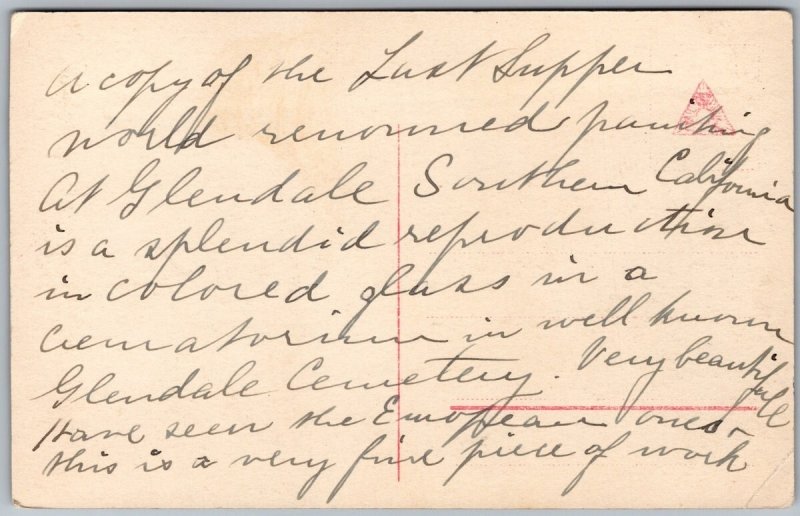 A copy of the Last Supper
world renowned painting
At Glendale Southern California
is a splendid reproduction
in colored glass in a
crematorium in well known
Glendale Cemetery. Very beautifull
Have seen the European ones &
this is a very fine piece of work